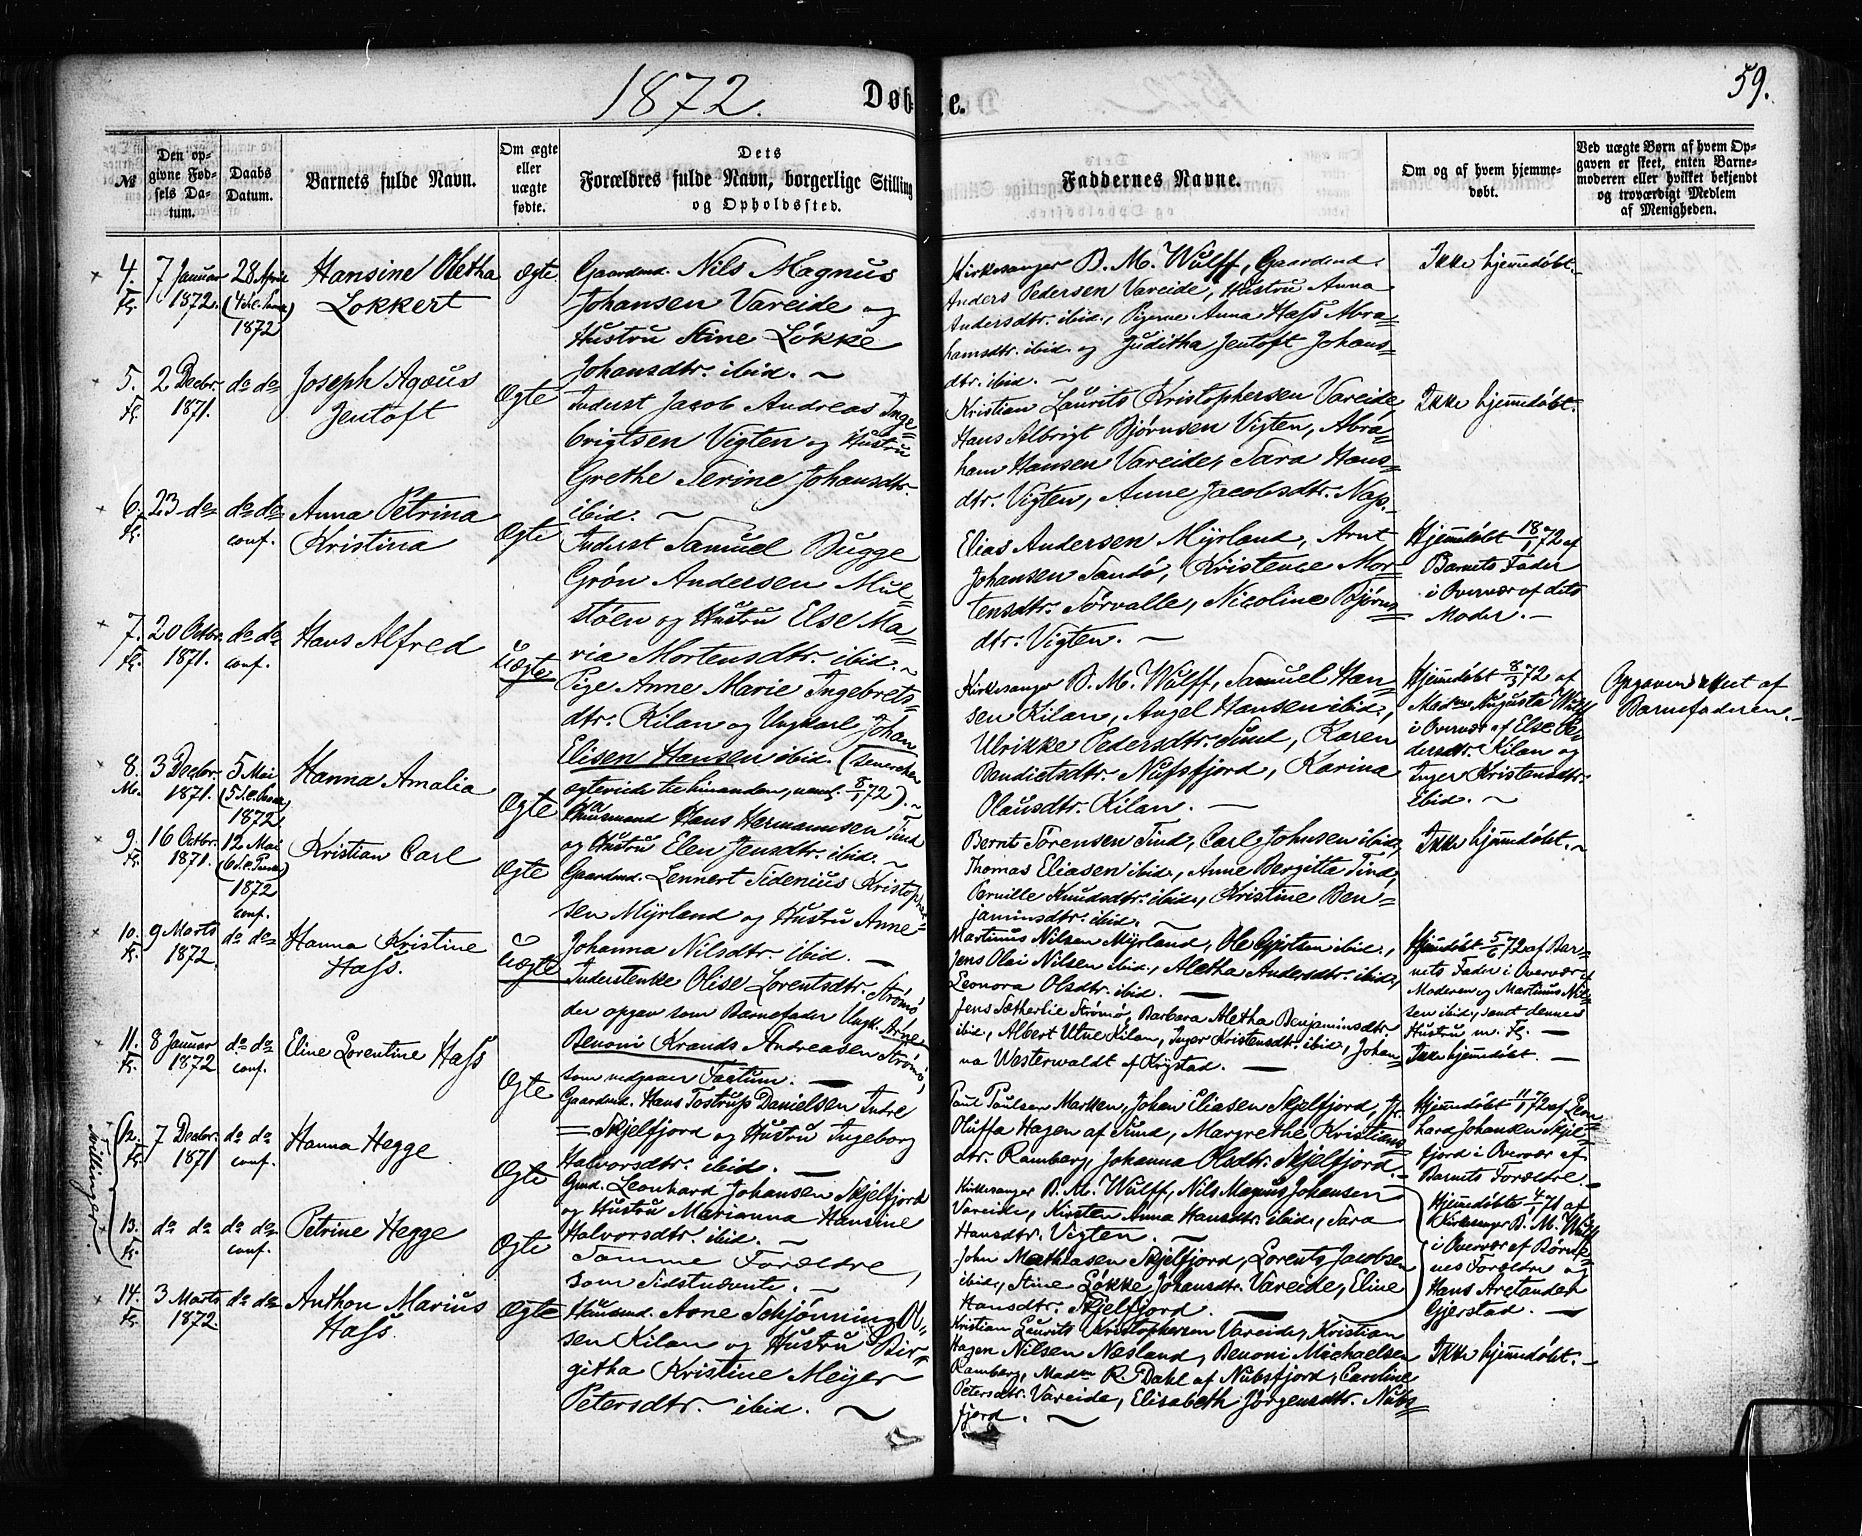 1872.
Døbte.
59.
№
Den opgivne Fødsels Datum.
Daabs Datum.
Barnets fulde Navn.
Om ægte eller uægte fødte.
Dets Forældres fulde Navn, borgerlige Stilling og Opholdssted.
Faddernes Navne.
Om og af hvem hjemmedøbt.
Ved uægte Børn af hvem Opgaven er skeet, enten Barnemoderen eller hvilket bekjendt og troværdigt Medlem af Menigheden.
4.
7 Januar
1872.
28 April
1872
Hansine Oletha
Lokkert
Ægte
Gaardmd. Nils Magnus
Johansen Vareide og
Hustru Stine Løkke
Johansdtr. ibid. ~
Kirkesanger B. M. Wulff, Gaardmd.
Anders Pedersen Vareide, Hustru Anna
Andersdtr. ibid., Pigerne Anna Hass Abra=
hamsdtr. ibid. og Juditha Jentoft Johans=
dtr. ibid. ~
Ikke hjemmedøbt.
5.
2 Decbr.
1871.
do do
Joseph Agæus
Jentoft
Ægte
Inderst Jacob Andreas Inge=
brigtsen Vigten og Hustru
Grethe Serine Johansdtr.
ibid. ~
Kristian Laurits Kristophersen Vareide,
Hans Albrigt Bjørnsen Vigten, Abra=
ham Hansen Vareide, Sara Hans=
dtr. Vigten, Anne Jacobsdtr. Nap.
Ikke hjemmedøbt.
6.
23 do
do do
conf.
Anna Petrina
Kristina
Ægte
Inderst Samuel Bugge
Grøn Andersen Mul=
støen og Hustru Else Ma=
ria Mortensdtr. ibid. ~
Elias Andersen Myrland, Arnt
Johansen Sandø, Kristence Mor=
tensdtr. Sørvalle, Nicoline Bjørns=
dtr. Vigten. ~
Hjemmedøbt 18/1 72 af
Barnets Fader
i Overvær af dets
Moder. ~
7.
20 Octbr.
1871.
do do
conf.
Hans Alfred
Uægte
Pige Anne Marie Ingebrets=
dtr. Kilan og Ungkarl Johan
Elisen Hansen ibid. (senerehen
ægteviede til hinanden, neml. 8/1 72). ~
Kirkesanger B. M. Wulff, Samuel Han=
sen Kilan, Angel Hansen ibid.,
Ulrikke Pedersdtr. Sund, Karen
Bendictsdtr. Nufsfjord, Karina
Olausdtr. Kilan. ~
Hjemmedøbt 8/3 72 af
Madme Augusta Wulff
i Overvær af Else Pe=
dersdtr. Kilan og
Inger Kristensdtr.
ibid. ~
Opgaven skeet af
Barnefaderen. ~
8.
3 Decbr.
1871.
5 Mai
1872
Hanna Amalia
Ægte
Huusmand Hans Hermannsen Tind
og Hustru Elen Jensdtr. ibid. ~
Bernt Sørensen Tind, Carl Johnsen ibid.,
Thomas Eliasen ibid., Anne Bergitta Tind,
Pernille Knudsdtr. ibid., Kristine Ben=
jaminsdtr. ibid. ~
Ikke hjemmedøbt. ~
9.
16 Octbr.
1871.
12 Mai
1872
conf.
Kristian Carl
Ægte
Gaardmd. Lennert Sidenius Kristopher=
sen Myrland og Hustru Anne
Johanna Nilsdtr. ibid. —
Martinus Nilsen Myrland, Ole Gjertsen ibid.,
Jens Olai Nilsen ibid., Aletha Andersdtr. ibid.,
Leonora Olsdtr. ibid. —
Hjemmedøbt 72 af Bar=
nets Fader i Overvær af
Moderen og Martinus Nil=
sen ibid., samt dennes
Hustru m. Fl. —
10.
9 Marts
1872.
do do
Hanna Kristine
Hass.
Uægte
Inderstenke Olise Lorentsdtr. Strømø
der opgav som Barnefader Ungk. Arne
Benoni Krands Andreasen Strømø,
som vedgaaer Factum. —
Jens Sætherlie Strømø, Barbara Aletha Benjaminsdtr.
ibid., Albert Utne Kilan, Inger Kristensdtr. ibid., Johan=
na Westerwaldt af Krystad. —
Ikke hjemmedøbt. —
11.
8 Januar
1872
do do
conf.
Eline Lorentine Hass
Ægte
Gaardmd. Hans Tostrup Danielsen Indre
= Skjelfjord og Hustru Ingeborg
Halvorsdtr. ibid. —
Paul Paulsen Marken, Johan Eliasen Skjelfjord, Jfr.
Oluffa Hagen af Sund, Margrethe Kristians=
dtr. Ramberg, Johanna Olsdtr. Skjelfjord. -
Hjemmedøbt 11/1 72 af Leon=
hard Johansen Skjel=
fjord i Overvær af
Barnets Forældre. —
Tvillinger.
12.
7 Decbr.
1871
do do
conf.
Hanna Hegge
Ægte
Gmd. Leonhard Johansen Skjelfjord
og Hustru Marianna Hansine
Halvorsdtr. ibid. ~
Kirkesanger B. M. Wulff, Nils Magnus Johansen
Vareide, Kirsten Anna Hansdtr. ibid., Sara
Hansdtr. Vigten. ~
Hjemmedøbte 71 af
Kirkesanger B. M. Wulff
i Overvær af Børne=
nes Forældre og
Hans Arctander
Gjerstad. —
13.
do do
do do
conf.
Petrine Hegge
Ægte
Samme Forældre,
som Sidstnævnte. ~
John Mathiasen Skjelfjord, Lorents Jacobsen
ibid., Stine Løkke Johansdtr. Vareide, Eline
Hansdtr. Skjelfjord. —
14.
3 Marts
1872
do do
Anthon Marius
Hass.
Ægte
Huusmd. Arne Schjønning Ol=
sen Kilan og Hustru Bir=
githa Kristine Meyer
Petersdtr. ibid. ~
Kristian Laurits Kristophersen Vareide, Kristian
Hagen Nilsen Næsland, Benoni Michaelsen
Ramberg, Madm R. Dahl af Nubsfjord, Caroline
Petersdtr. Vareide, Elisabeth Jørgensdtr. Nubs=
fjord. ~
Ikke hjemmedøbt. —